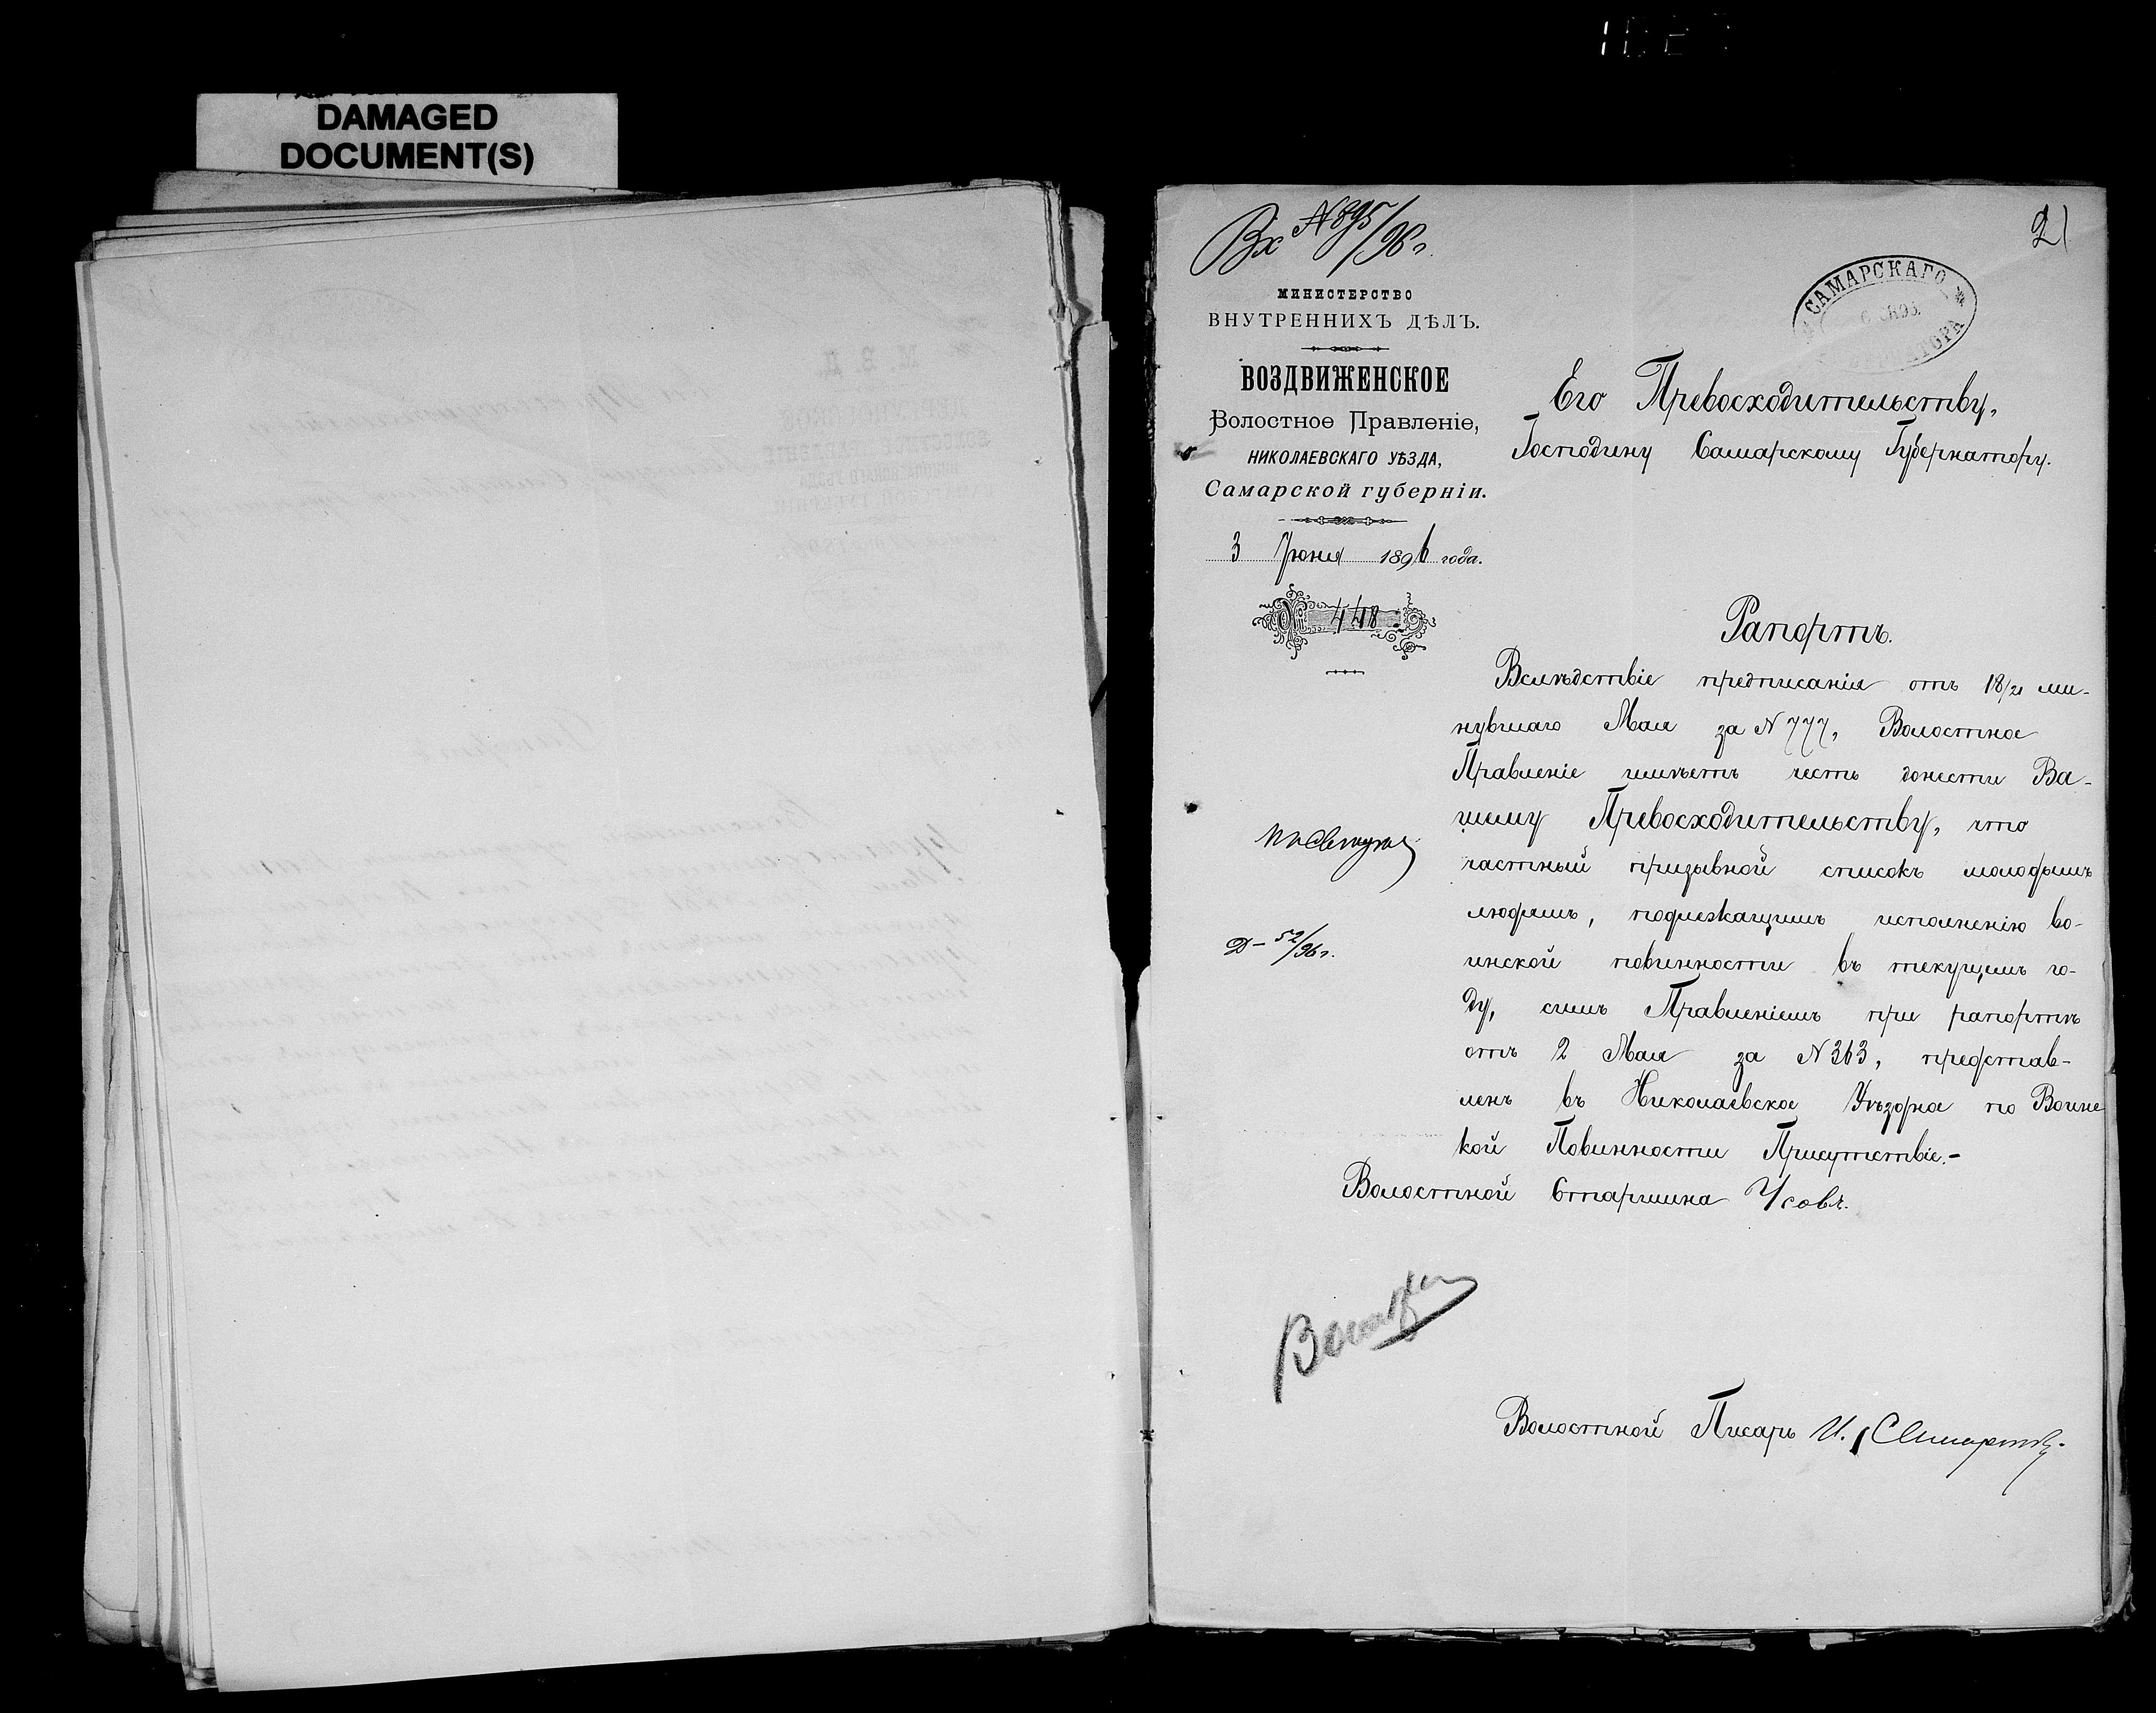 DAMAGED
DOCUMENT(S)
Вх №895/96 г.
21
МИНИСТЕРСТВО
ВНУТРЕННИХЪ ДѢЛЪ.
САМАРСКАГО
ВОЗДВИЖЕНСКОЕ
Волостное Правленіе,
НИКОЛАЕВСКАГО УѢЗДА,
Самарской губерніи.
3 Іюня 1896 года.
№ 448
Его Превосходительству,
Господину Самарскому Губернатору.
Рапортъ.
Вслѣдствіе предписанія отъ 18/21 ми-
нувшаго Мая за N 777, Волостное
Правленіе имѣетъ честь донести Ва-
шему Превосходительству, что
частный призывной списокъ молодымъ
людямъ, подлежащимъ исполненію во-
инской повинности въ текущемъ го-
ду, симъ Правленіемъ при рапортѣ
отъ 2 Мая за N 363, представ-
ленъ въ Николаевское Уѣздное по Воинс
кой Повинности Присутствіе.-
Волостной Старшина Усовъ.
Д- 52/96 г.
Волостной Писарь И.